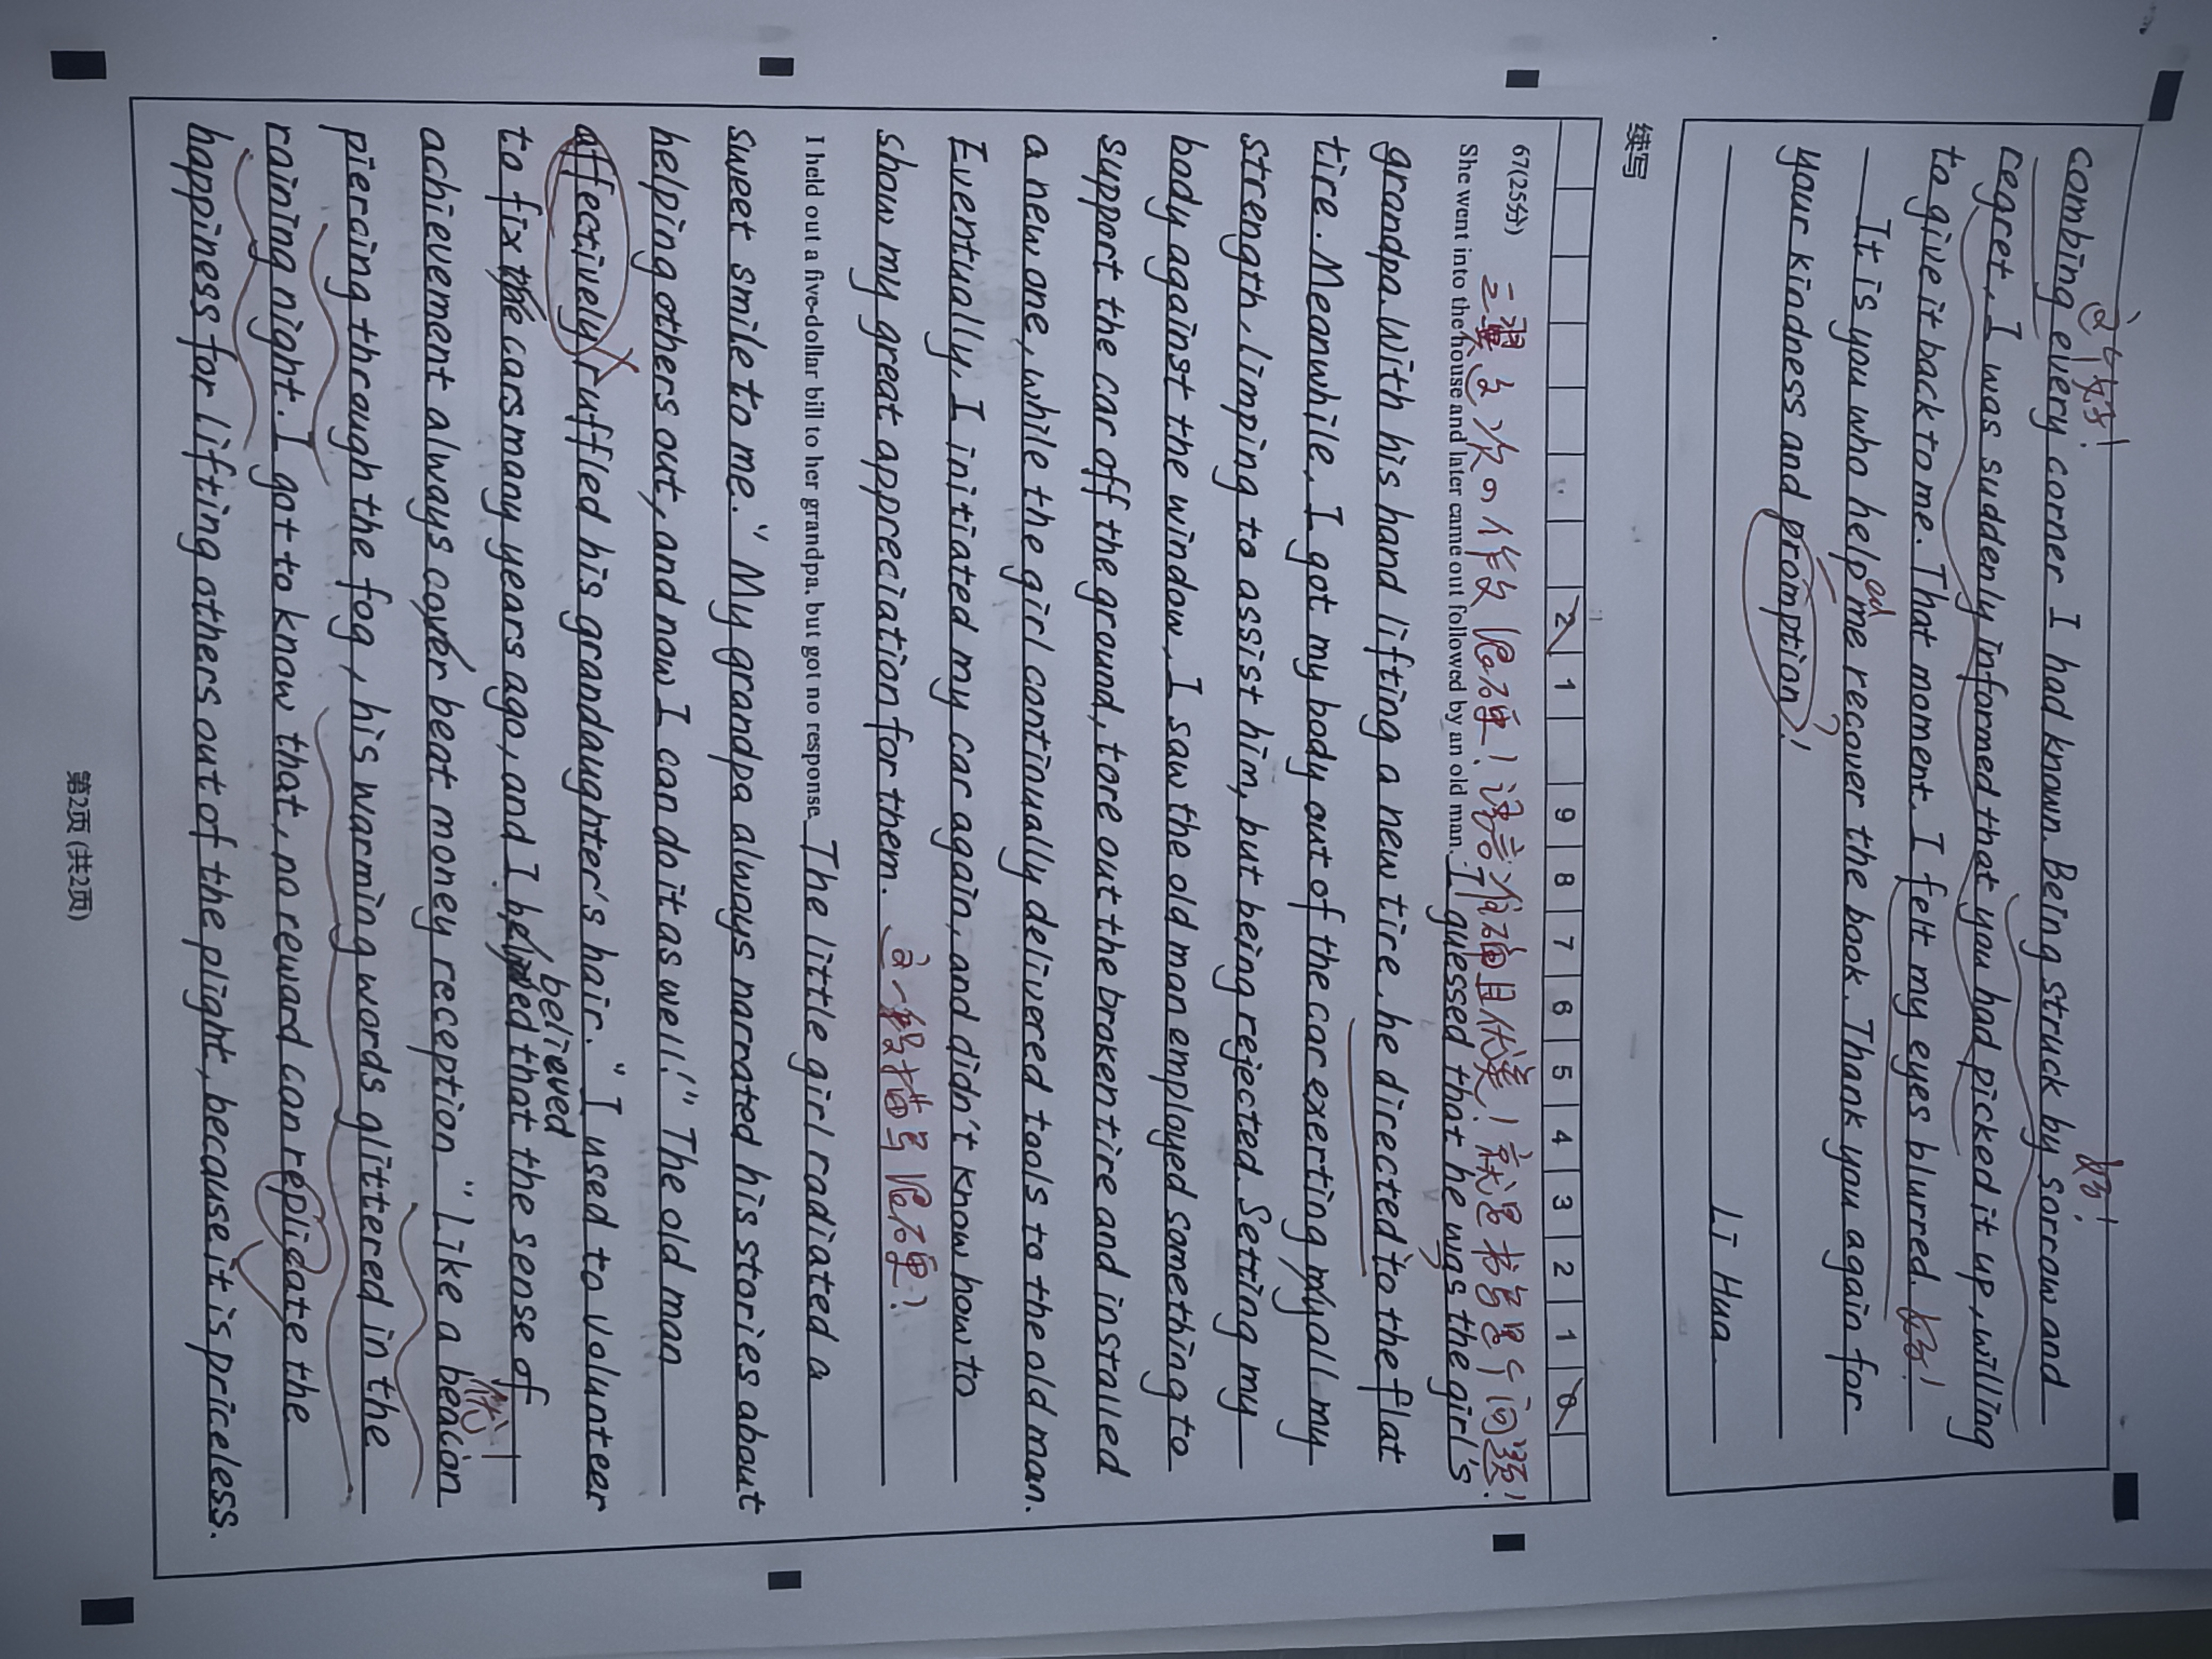 combing every corner I had known. Being struck by sorrow and
regret, I was suddenly informed that you had picked it up, willing
to give it back to me. That moment, I felt my eyes blurred. 好!
It is you who helped me recover the book. Thank you again for
your kindness and promption!
Li Hua
续写
2 1 9 8 7 6 5 4 3 2 1 0
67(25分) 这次の作文很厉害!语言准确且优美!就是书写是个问题!
She went into the house and later came out followed by an old man. I guessed that he was the girl's
grandpa. With his hand lifting a new tire, he directed to the flat
tire. Meanwhile, I got my body out of the car exerting my all my
strength, limping to assist him, but being rejected. Setting my
body against the window, I saw the old man employed something to
support the car off the ground, tore out the broken tire and installed
a new one, while the girl continually delivered tools to the old man.
Eventually, I initiated my car again, and didn't know how to
show my great appreciation for them. 这一段描写很厉害!
I held out a five-dollar bill to her grandpa, but got no response. The little girl radiated a
sweet smile to me. "My grandpa always narrated his stories about
helping others out, and now I can do it as well!" The old man
affectively ruffled his grandaughter's hair. "I used to volunteer
to fix the cars many years ago, and I believed that the sense of
achievement always cover beat money reception" Like a beacion
piercing through the fog, his warming words glittered in the
raining night. I got to know that, no reward can replidate the
happiness for lifting others out of the plight, because it is priceless.
第2页 (共2页)